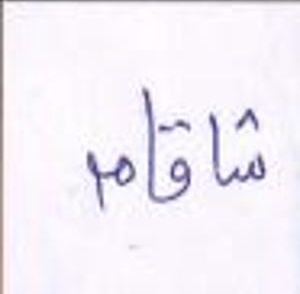 شاقامر